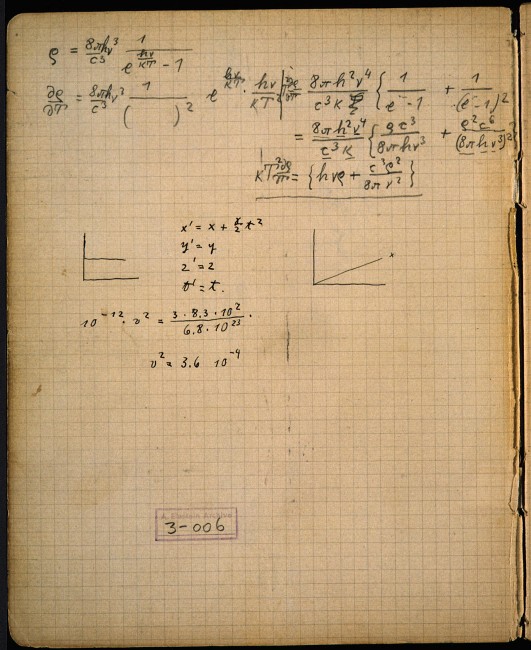 ρ = 8πhν³/c³ 1/(e^(hν/KT) − 1)
∂ρ/∂T = 8πhν³/c³ 1/( )² e^(hν/KT) · hν/KT² | ∂ρ/∂T 8πh²ν⁴/c³K { 1/(e −1) + 1/(e −1)² }
= 8πh²ν⁴/c³K { ρc³/8πhν³ + ρ²c⁶/(8πhν³)² }
KT² ∂ρ/∂T = { hνρ + c³ρ²/8πν² }
x' = x + γ/2 t²
y' = y
z' = z
t' = t.
x
10⁻¹² · v² = 3 · 8,3 · 10²/6.8 · 10²³ .
v² = 3.6 10⁻⁴
3-006